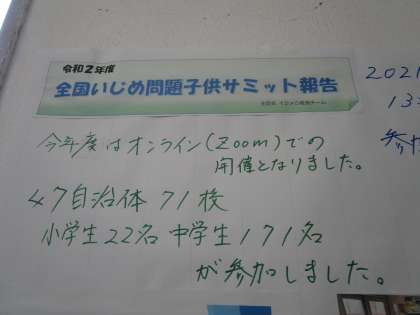 令和2年度
全国いじめ問題子供サミット報告
今年度はオンライン(Zoom)での
開催となりました。
47自治体 71校
小学生22名 中学生171名
が参加しました。
2021
13
参加